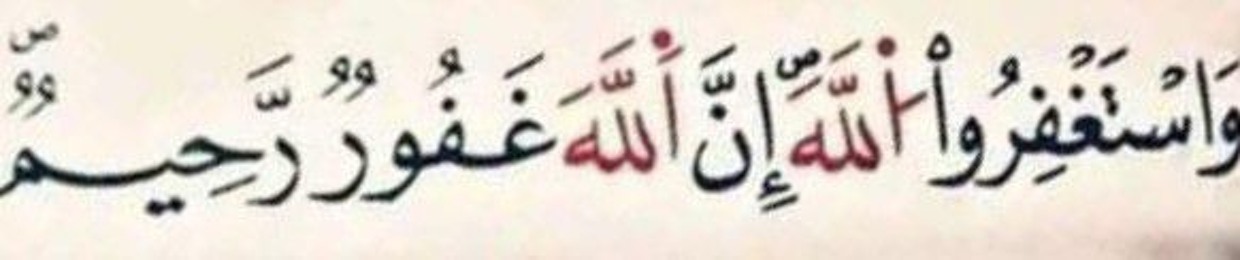 وَاسْتَغْفِرُواْ اللَّهَ ۖ إِنَّ اللَّهَ غَفُورٌ رَّحِيمٌ ۖ